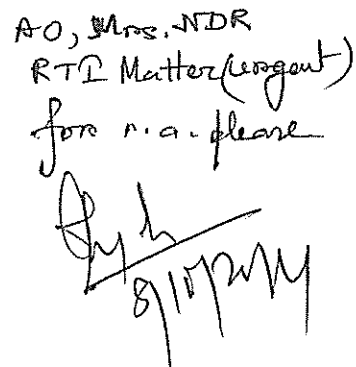 AO, Mrs. NDR
RTI Matter (urgent)
for n.a. please
8/10/2014